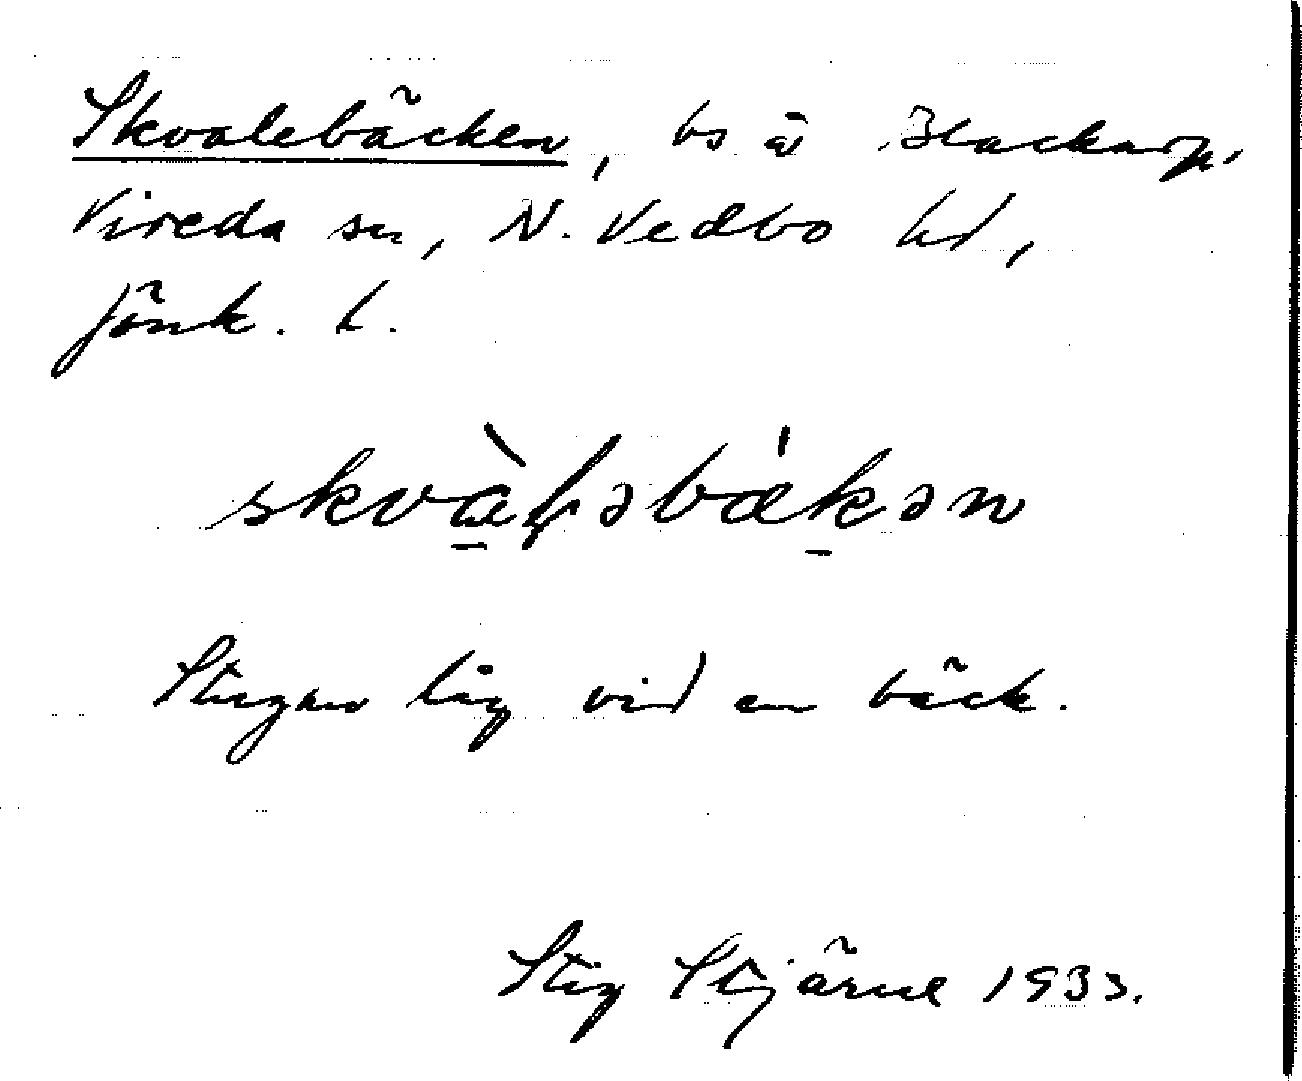 Skvalebäcken, bs å Blackarp,
Vireda sn, N. Vedbo hd,
Jönk. l.
skvàɭəbækən
Stugan låg vid en bäck.
Stig Stjärne 1933.